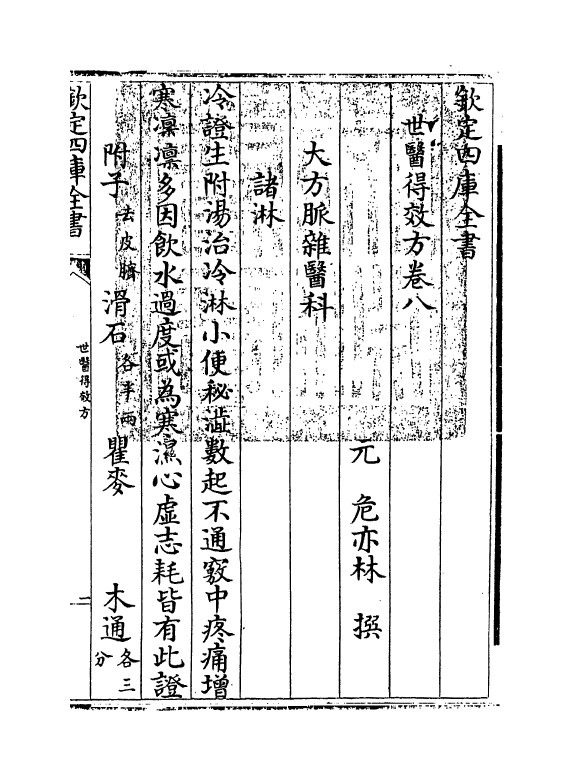 欽定四庫全書
世醫得效方卷八
元 危亦林 撰
大方脈雜醫科
諸淋
冷證生附湯治冷淋小便秘澁數起不通竅中疼痛增
寒凜凜多因飲水過度或為寒濕心虛志耗皆有此證
附子去皮臍 滑石各半兩 瞿麥 木通各三分
欽定四庫全書
世醫得效方